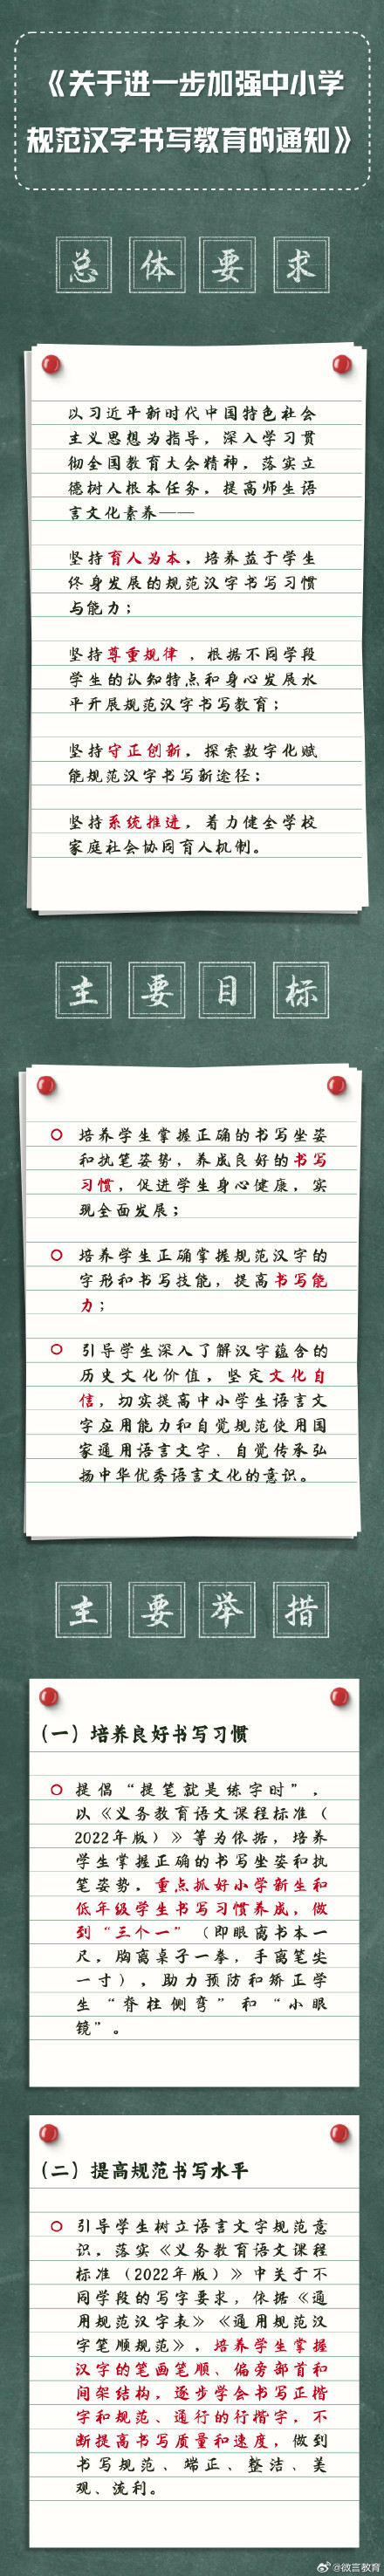 《关于进一步加强中小学
规范汉字书写教育的通知》
总体要求
以习近平新时代中国特色社会
主义思想为指导，深入学习贯
彻全国教育大会精神，落实立
德树人根本任务，提高师生语
言文化素养——
坚持育人为本，培养益于学生
终身发展的规范汉字书写习惯
与能力；
坚持尊重规律，根据不同学段
学生的认知特点和身心发展水
平开展规范汉字书写教育；
坚持守正创新，探索数字化赋
能规范汉字书写新途径；
坚持系统推进，着力健全学校
家庭社会协同育人机制。
主要目标
培养学生掌握正确的书写坐姿
和执笔姿势，养成良好的书写
习惯，促进学生身心健康，实
现全面发展；
培养学生正确掌握规范汉字的
字形和书写技能，提高书写能
力；
引导学生深入了解汉字蕴含的
历史文化价值，坚定文化自
信，切实提高中小学生语言文
字应用能力和自觉规范使用国
家通用语言文字、自觉传承弘
扬中华优秀语言文化的意识。
主要举措
（一）培养良好书写习惯
提倡“提笔就是练字时”，
以《义务教育语文课程标准（
2022年版）》等为依据，培养
学生掌握正确的书写坐姿和执
笔姿势，重点抓好小学新生和
低年级学生书写习惯养成，做
到“三个一”（即眼离书本一
尺，胸离桌子一拳，手离笔尖
一寸），助力预防和矫正学
生“脊柱侧弯”和“小眼
镜”。
（二）提高规范书写水平
引导学生树立语言文字规范意
识，落实《义务教育语文课程
标准（2022年版）》中关于不
同学段的写字要求，依据《通
用规范汉字表》《通用规范汉
字笔顺规范》，培养学生掌握
汉字的笔画笔顺、偏旁部首和
间架结构，逐步学会书写正楷
字和规范、通行的行楷字，不
断提高书写质量和速度，做到
书写规范、端正、整洁、美
观、流利。
@微言教育